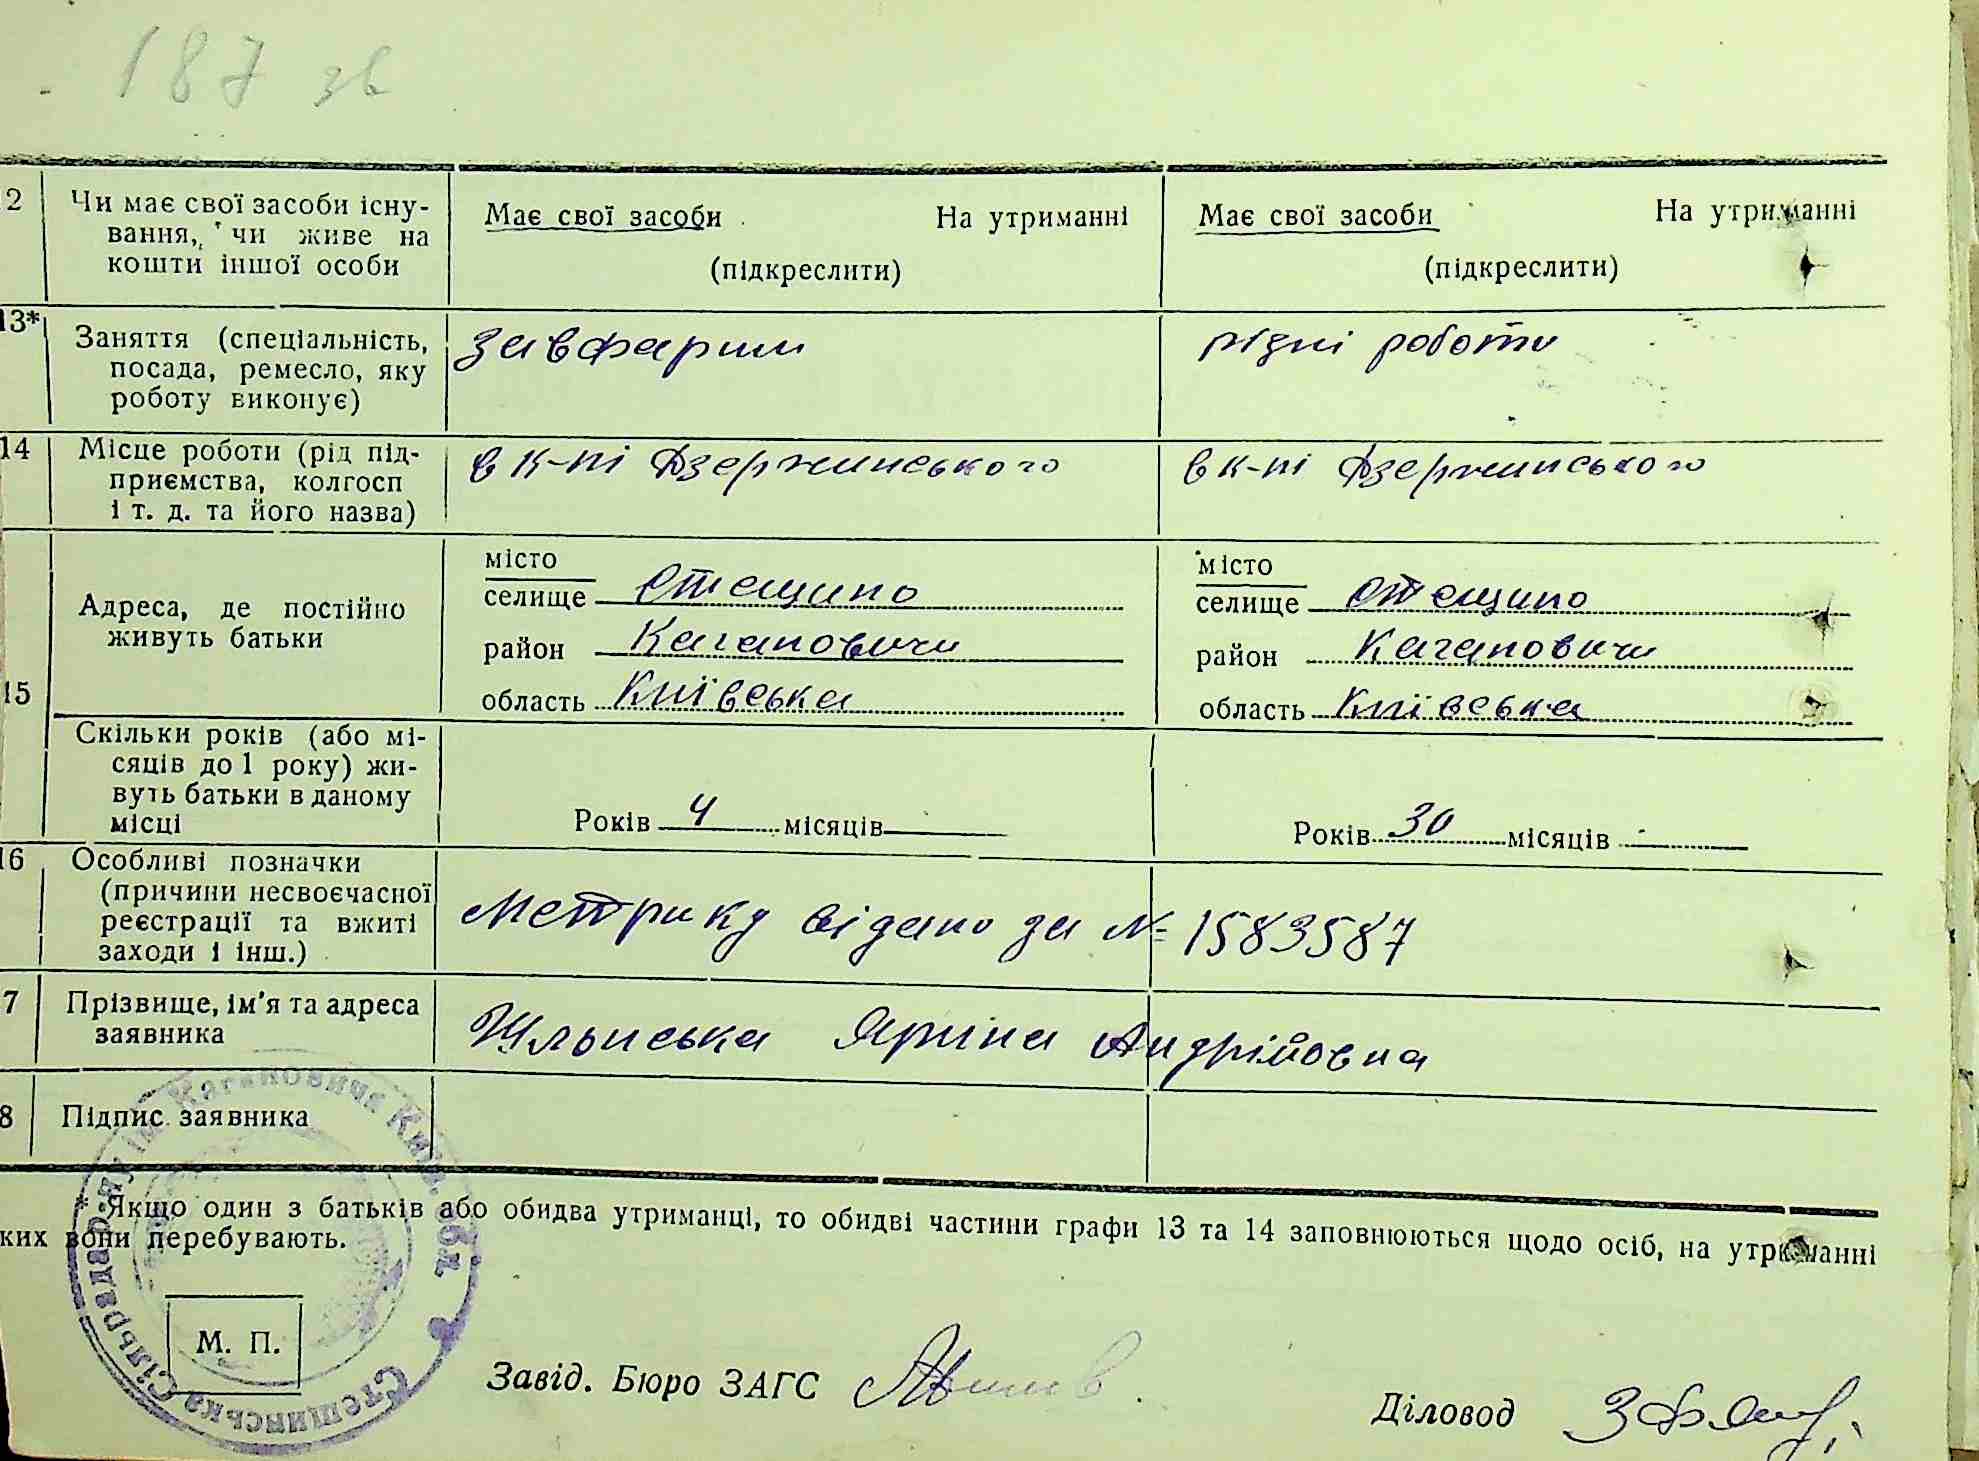 187 зв
2 Чи має свої засоби існу-
вання, чи живе на
кошти іншої особи
Має свої засоби На утриманні
(підкреслити)
Має свої засоби На утриманні
(підкреслити)
13* Заняття (спеціальність,
посада, ремесло, яку
роботу виконує)
завфарми
різні роботи
14 Місце роботи (рід під-
приємства, колгосп
і т. д. та його назва)
в к-пі Дзержинського
в к-пі Дзержинського
15 Адреса, де постійно
живуть батьки
місто
селище Стещино
район Кагановичи
область Київська
місто
селище Стещино
район Кагановичи
область Київська
Скільки років (або мі-
сяців до 1 року) жи-
вуть батьки в даному
місці
Років 4 місяців
Років 30 місяців
16 Особливі позначки
(причини несвоєчасної
реєстрації та вжиті
заходи і інш.)
Метрику видано за № 1583587
7 Прізвище, ім'я та адреса
заявника
Яріна Андрійовна
8 Підпис заявника
* Якщо один з батьків або обидва утриманці, то обидві частини графи 13 та 14 заповнюються щодо осіб, на утриманні
ких вони перебувають.
Стещинська Сільрада р-ну ім. Кагановича Київ. обл
М. П.
Завід. Бюро ЗАГС
Діловод